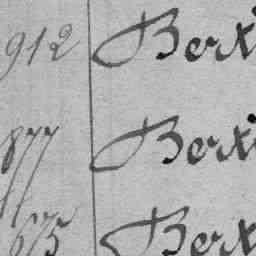 912 Bert
877 Bert
675 Bert